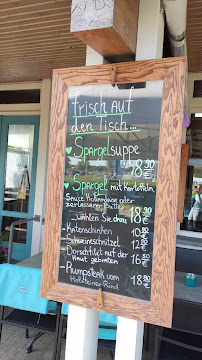 frisch Auf
den Tisch...
Spargelsuppe
Spargel mit Kartoffeln
Sauce Hollandaise oder
zerlassener Butter 18.50
wählen Sie dazu
- Katenschinken 10.80
- Schweineschnitzel 12.80
- Dorschfilet auf der
Haut gebraten 16.80
- Rumpsteak vom
Holsteiner Rind 18.80